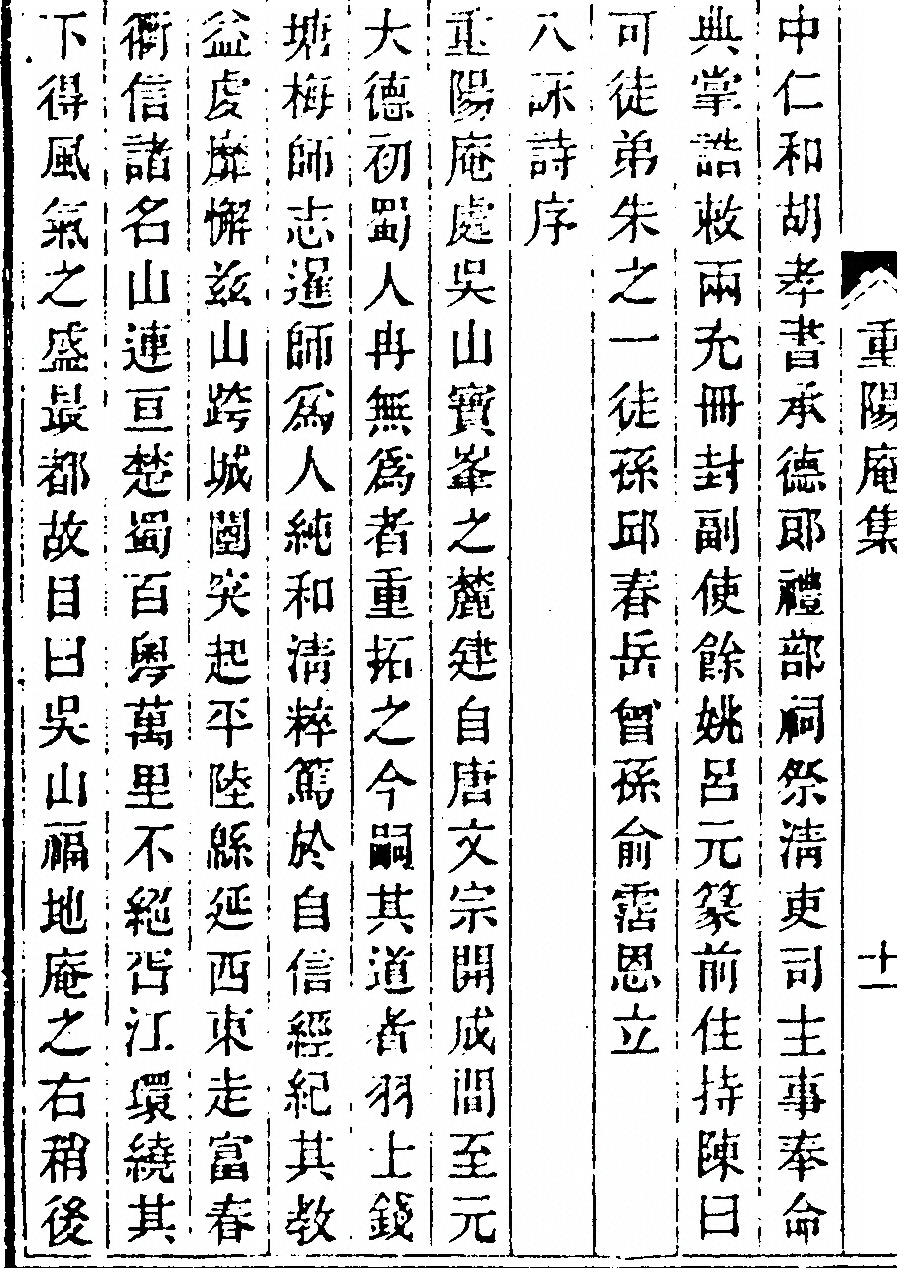 重陽庵集
十一
中仁和胡孝書承德郎禮部祠祭清吏司主事奉命
典掌誥敕兩充冊封副使餘姚呂元篆前住持陳曰
可徒弟朱之一徒孫邱春岳曾孫俞霑恩立
八詠詩序
重陽庵處吳山寶峯之麓建自唐文宗開成間至元
大德初蜀人冉無爲者重拓之今嗣其道者羽士錢
塘梅師志暹師爲人純和淸粹篤於自信經紀其教
益虔靡懈兹山跨城闉突起平陸緜延西東走富春
衢信諸名山連亘楚蜀百粵萬里不絕呑江環繞其
下得風氣之盛最都故目曰吳山福地庵之右稍後